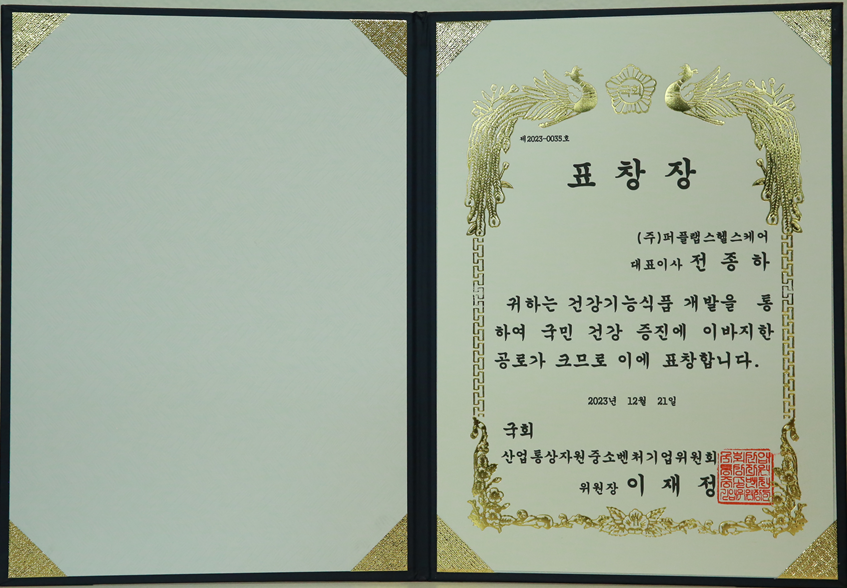 제2023-0035호
표 창 장
(주)퍼플랩스헬스케어
대표이사 전 종 하
귀하는 건강기능식품 개발을 통
하여 국민 건강 증진에 이바지한
공로가 크므로 이에 표창합니다.
2023년 12월 21일
국회
산업통상자원중소벤처기업위원회
위원장 이 재 정